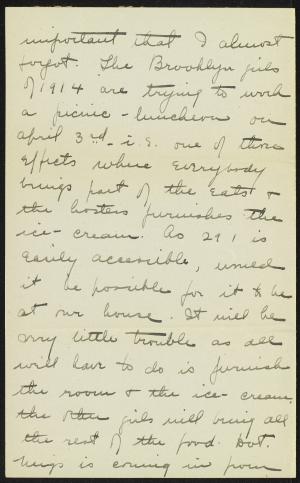 important that I almost
forgot. The Brooklyn girls
of 1914 are trying to work
a picnic-luncheon on
april 3rd - i.e. one of those
Effects where Everybody
brings part of the Eats &
the hostess furnishes the
ice-cream. As 291 is
Easily accessible, would
it be possible for it to be
at our house. It will be
very little trouble as all
we'll have to do is furnish
the room & the ice-cream.
the other girls will bring all
the rest of the food. Dot.
is coming in from